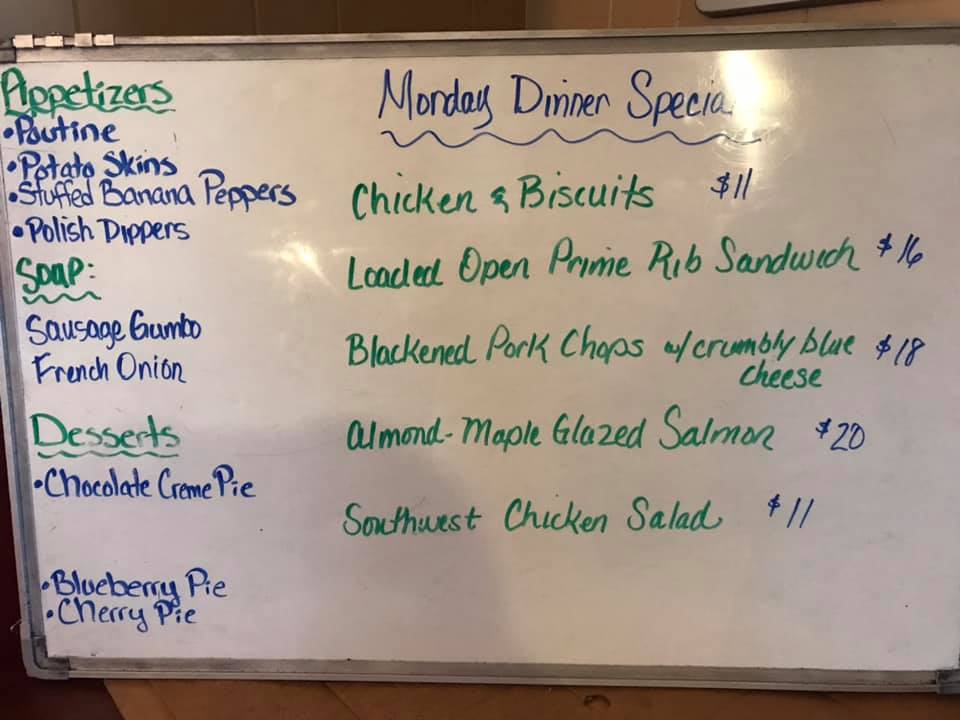 Appetizers
•Poutine
•Potato Skins
•Stuffed Banana Peppers
•Polish Dippers
Soup:
Sausage Gumbo
French Onion
Desserts
•Chocolate Creme Pie
•Blueberry Pie
•Cherry Pie
Monday Dinner Specia
Chicken & Biscuits $11
Loaded Open Prime Rib Sandwich $16
Blackened Pork Chops w/ crumbly blue $18
cheese
Almond-Maple Glazed Salmon $20
Southwest Chicken Salad $11